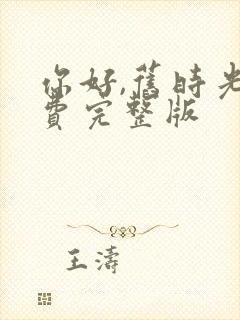 你好,舊時光
費完整版
王濤